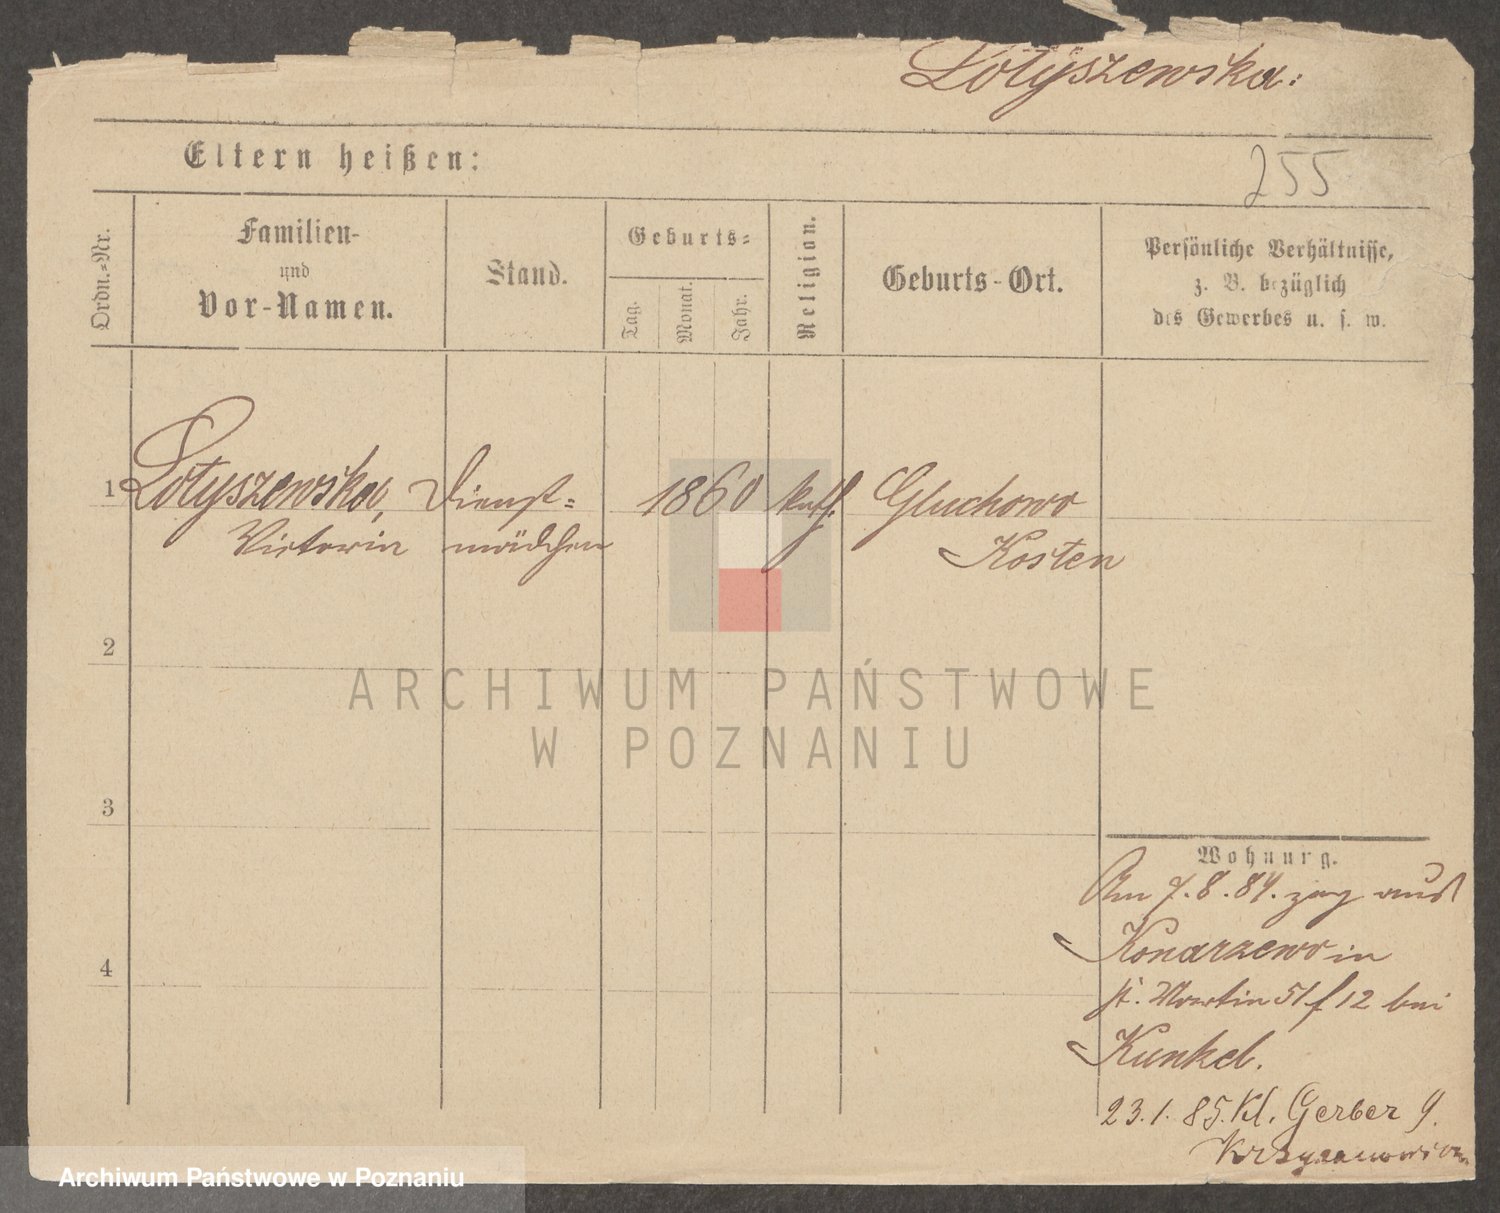 Lotyszewska:
Eltern heißen:
255
Ordn.-Nr.
Familien-
und
Vor-Namen.
Stand.
Geburts-
Tag.
Monat.
Jahr.
Religion.
Geburts-Ort.
Persönliche Verhältnisse,
z. B. bezüglich
des Gewerbes u. s. w.
1 Lotyszewska, Dienst= 1860 kath. Gluchowo
Victoria mädchen Kosten
2
ARCHIWUM PAŃSTWOWE
W POZNANIU
3
Wohnung.
Am 7. 8. 84. zog aus
Konarzewo in
St. Martin 51 f 12 bei
4
Kunkel.
23. 1. 85. Kl. Gerber 9.
Archiwum Państwowe w Poznaniu